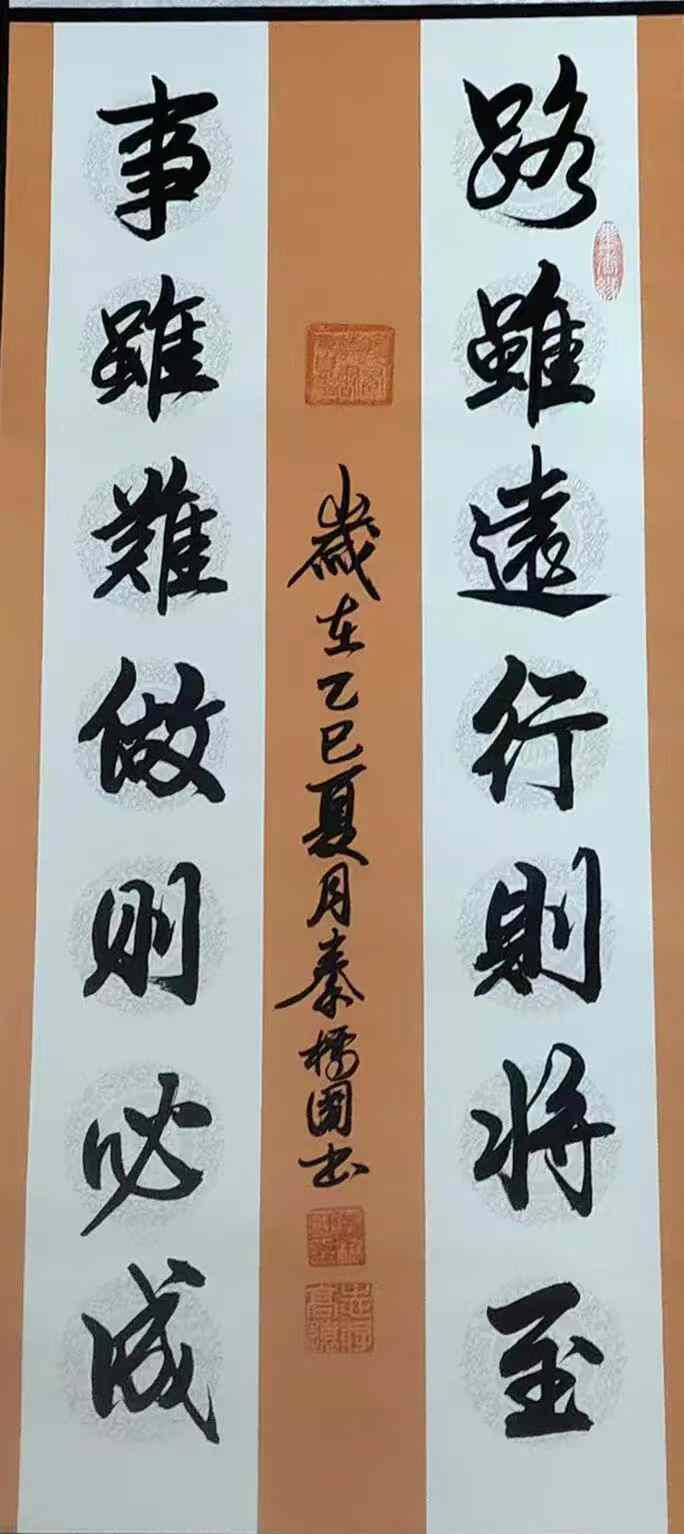 路雖遠行則將至
事雖難做则必成
歲在乙巳夏月秦橋國书